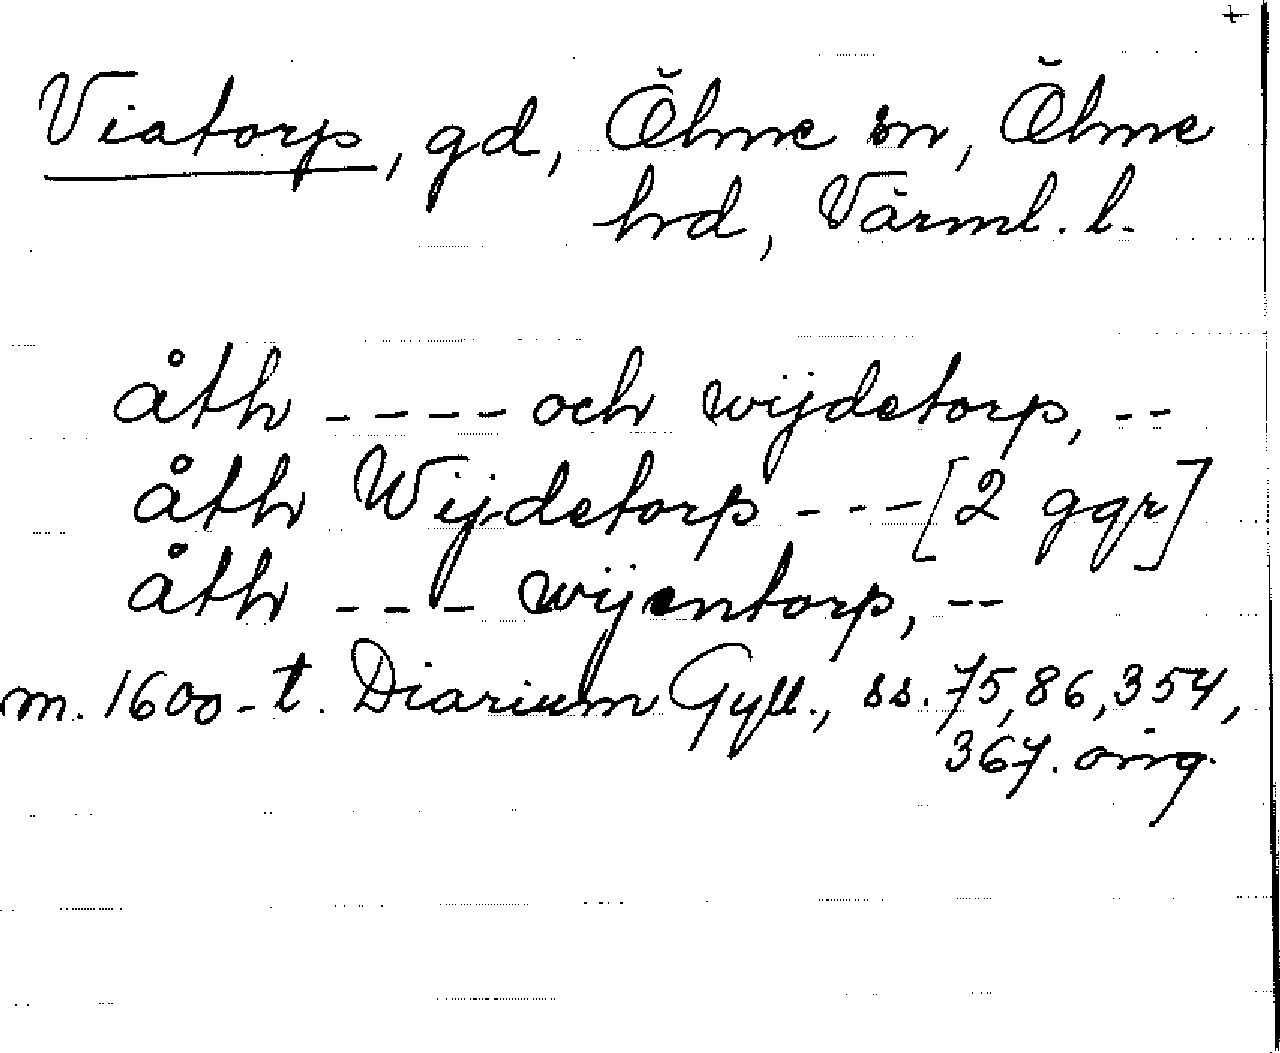 +
Viatorp, gd, Ölme sn, Ölme
hd, Värml. l.
åth ---- och wijdetorp, --
åth Wijdetorp --- [2 ggr]
åth --- wijentorp, --
m. 1600-t. Diarium Gyll., ss. 75, 86, 354,
367. orig.